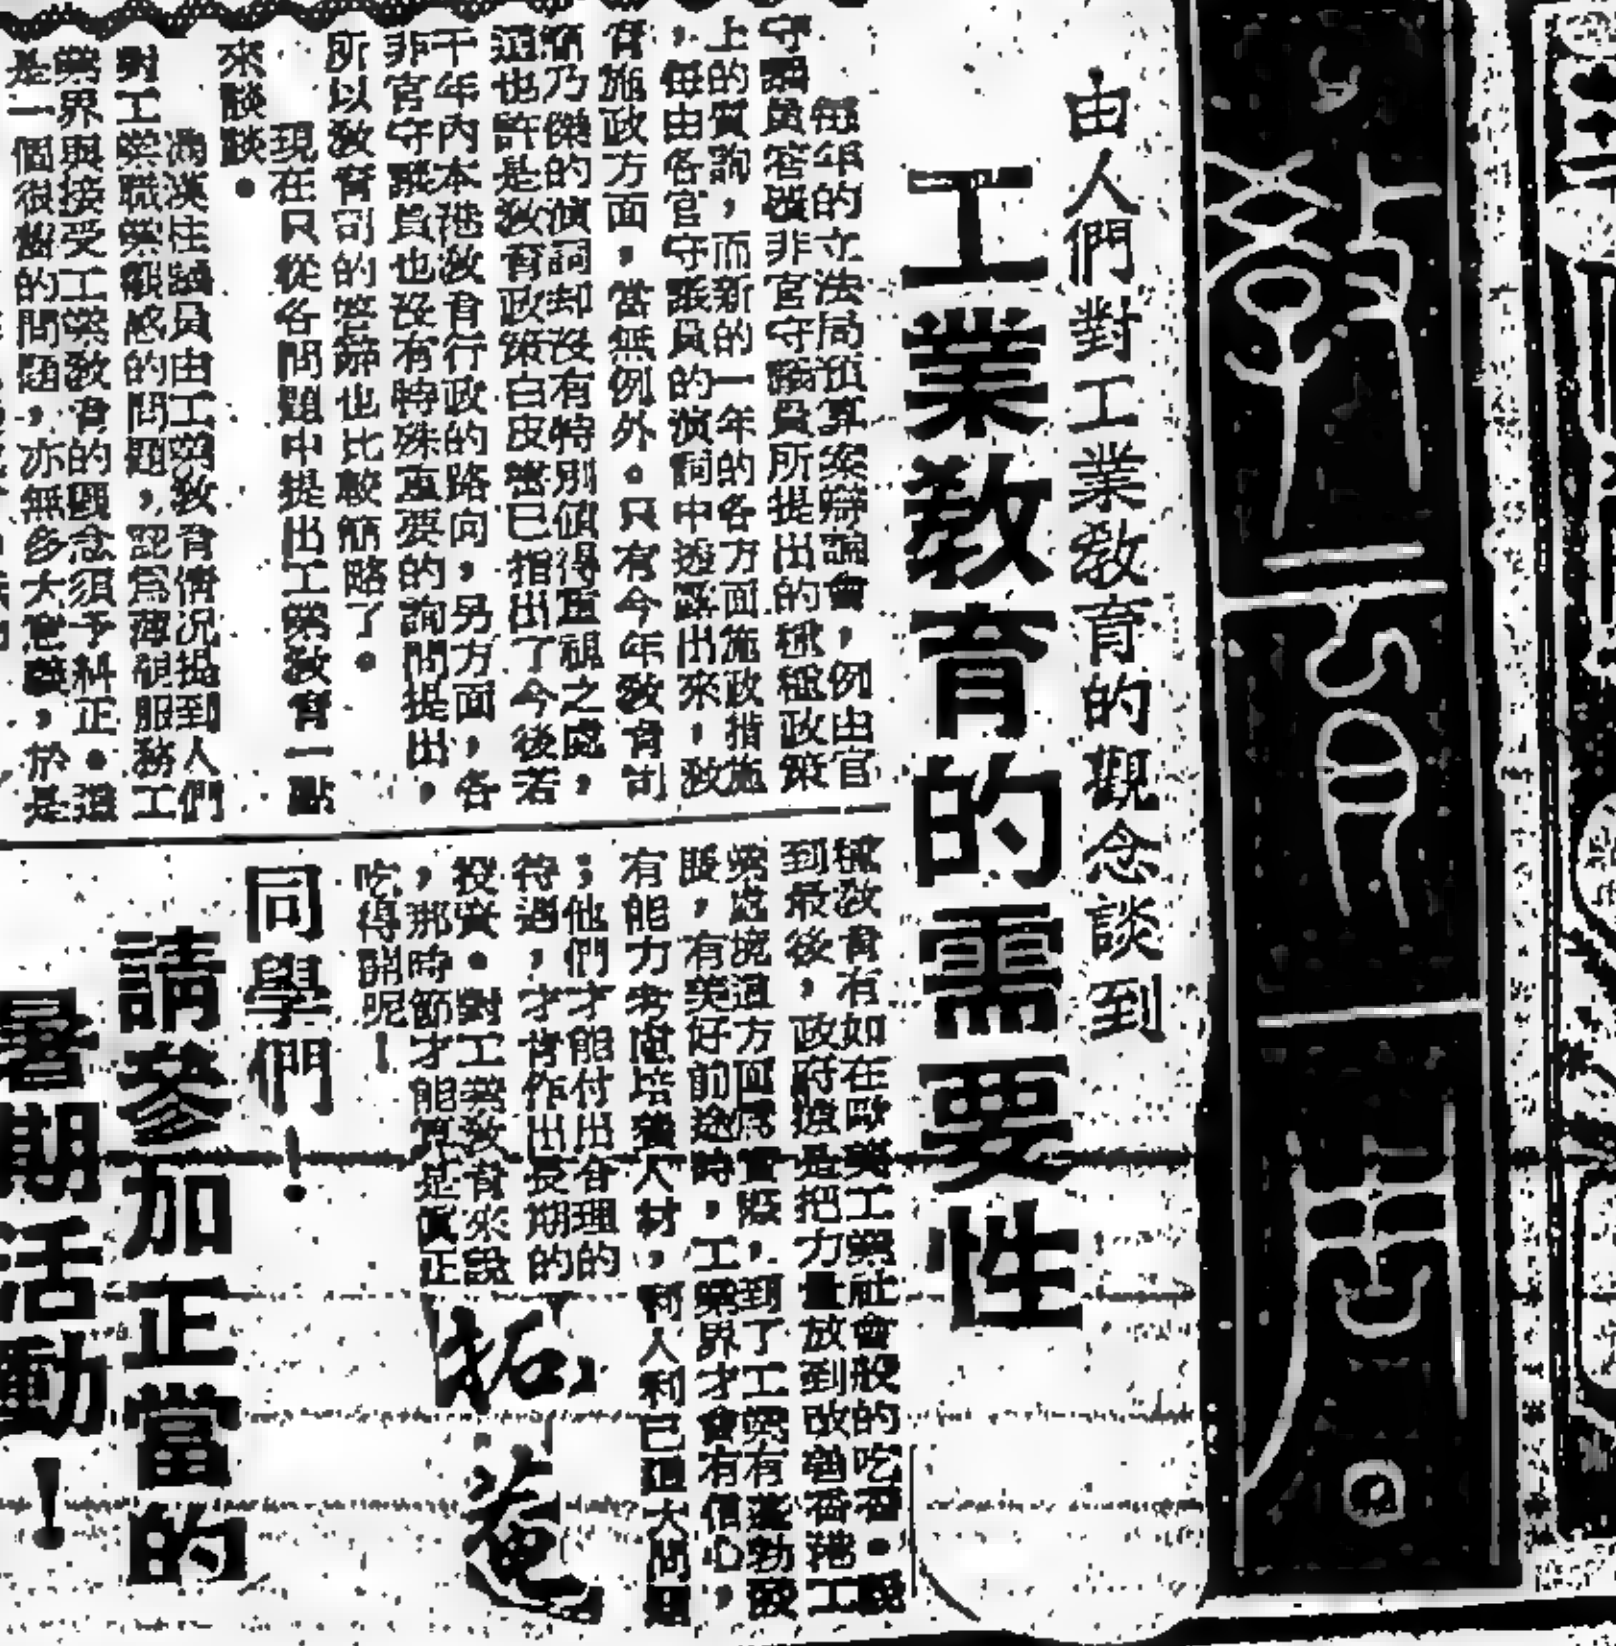 教育圈
由人們對工業敎育的觀念談到
工業敎育的需要性
每年的立法局預算案辯論會，例由官
守議員答覆非官守議員所提出的種種政策
上的質詢，而新的一年的各方面施政措施
，每由各官守議員的演詞中透露出來，敎
育施政方面，當無例外。只有今年敎育司
簡乃傑的演詞却沒有特別值得重視之處，
這也許是敎育政策白皮書已指出了今後若
干年內本港敎育行政的路向，另方面，各
非官守議員也沒有特殊重要的詢問提出，
所以敎育司的答辯也比較簡略了。
現在只從各問題中提出工業敎育一點
來談談。
馮漢柱議員由工業敎育情況提到人們
對工業職業觀感的問題，認爲薄視服務工
業界與接受工業敎育的觀念須予糾正。這
是一個很舊的問題，亦無多大意義，於是
種敎育有如在歐美工業社會般的吃香。說
到最後，政府還是把力量放到改善香港工
業處境這方面爲實際，到了工業有蓬勃發
展，有美好前途時，工業界才會有信心，
有能力考慮培養人材，利人利己這大問題
；他們才能付出合理的
待遇，才肯作出長期的
投資。對工業敎育來說
，那時節才能算是眞正
吃得開呢！
拓菴
同學們！
請參加正當的
暑期活動！